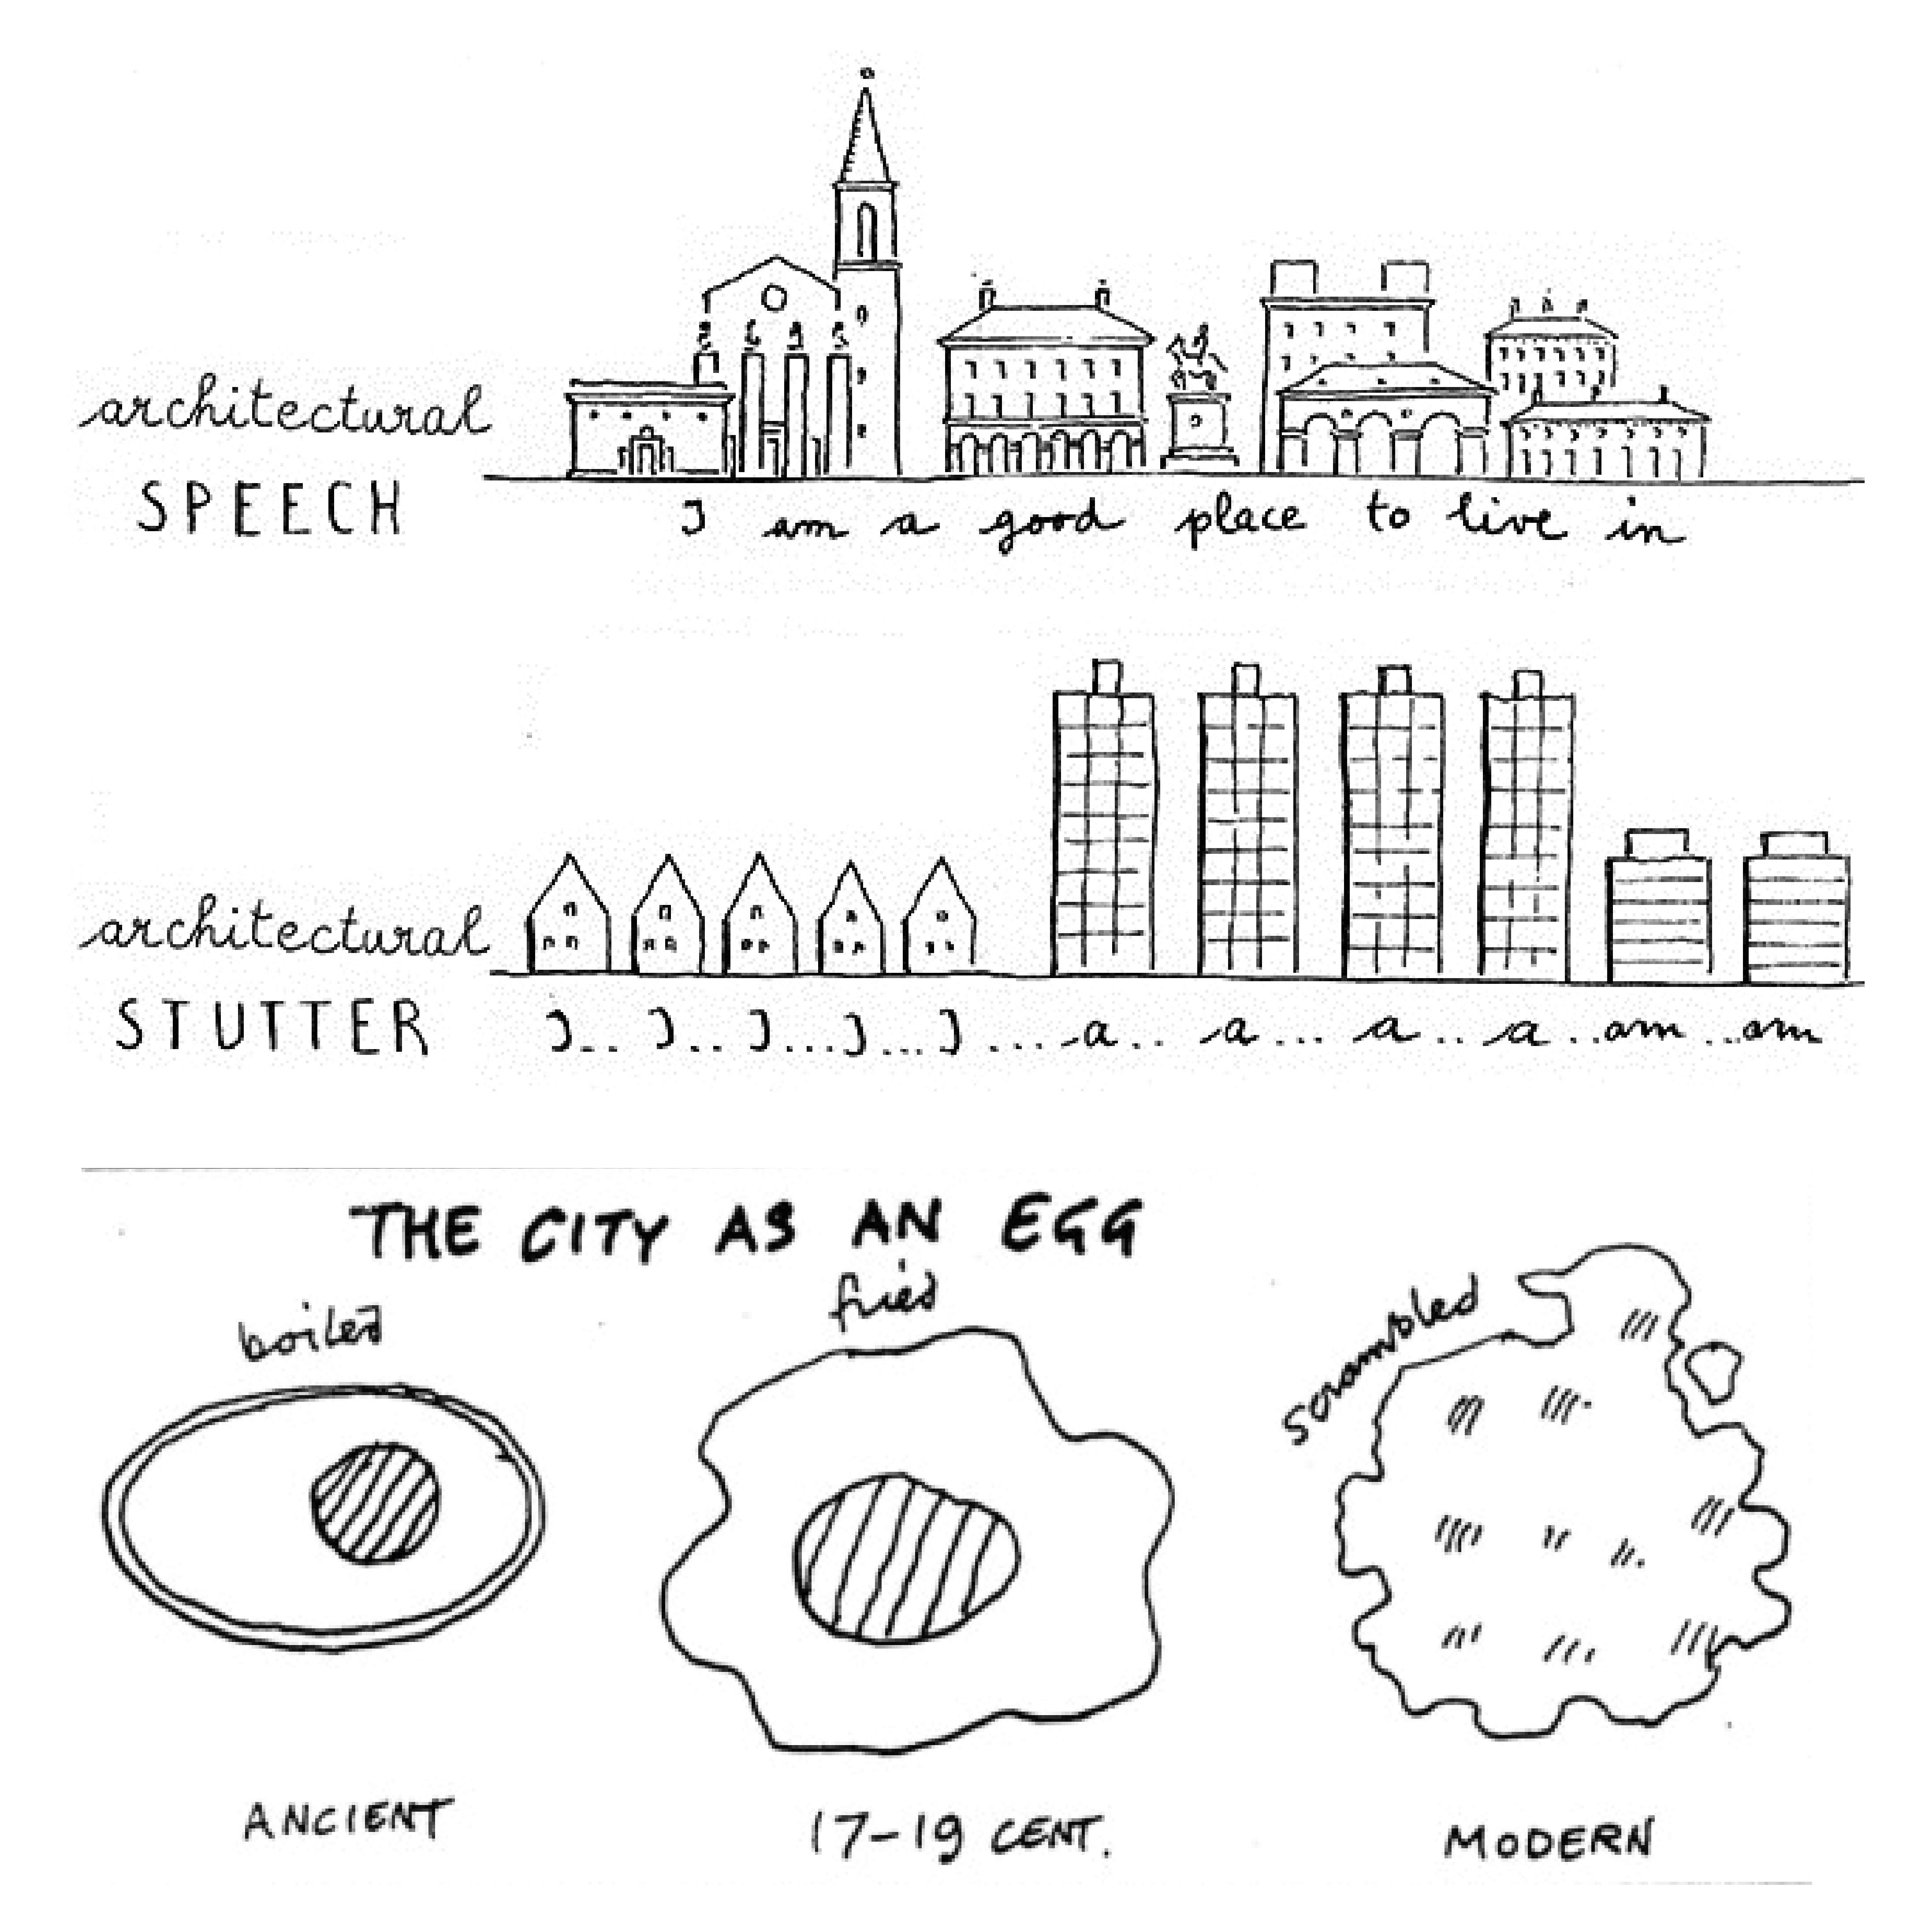 architectural
SPEECH
I am a good place to live in
architectural
STUTTER
I... I.. I...I...I ....a.. a... a..a..am ..am
THE CITY AS AN EGG
boiled
fried
scrambled
ANCIENT
17-19 CENT.
MODERN